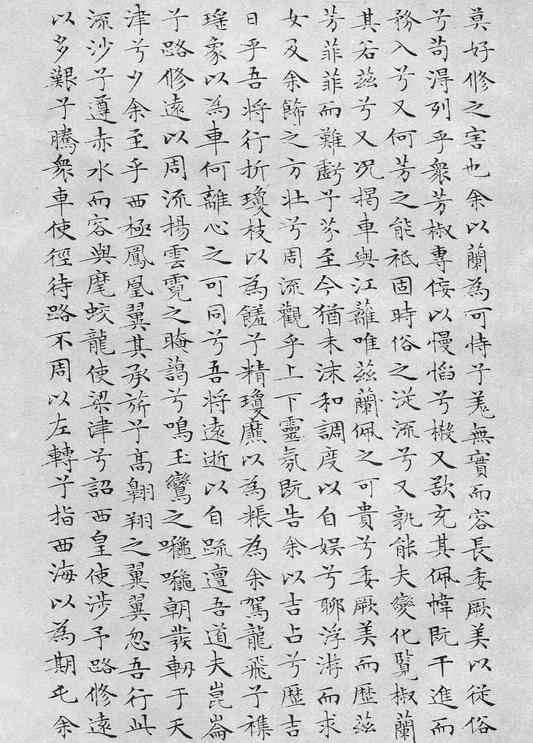 莫好修之害也余以蘭為可恃兮羌無實而容長委厥美以從俗
兮苟得列乎衆芳椒專佞以慢慆兮樧又欲充其佩幃既干進而
務入兮又何芳之能祗固時俗之從流兮又孰能夫變化覽椒蘭
其若茲兮又況揭車與江蘺唯茲蘭佩之可貴兮委厥美而歷茲
芳菲菲而難虧兮芬至今猶未沬和調度以自娛兮聊浮游而求
女及余飾之方壯兮周流觀乎上下靈氛既告余以吉占兮歷吉
日乎吾將行折瓊枝以為饈兮精瓊爢以為粻為余駕龍飛兮襍
瑤象以為車何離心之可同兮吾將遠逝以自疏邅吾道夫崑崙
兮路修遠以周流揚雲霓之晻藹兮鳴玉鸞之朝發軔于天
津兮夕余至乎西極鳳凰翼其承旂兮高翱翔之翼翼忽吾行此
流沙兮遵赤水而容與麾蛟龍使梁津兮詔西皇使涉予路修遠
以多艱兮騰衆車使徑待路不周以左轉兮指西海以為期屯余